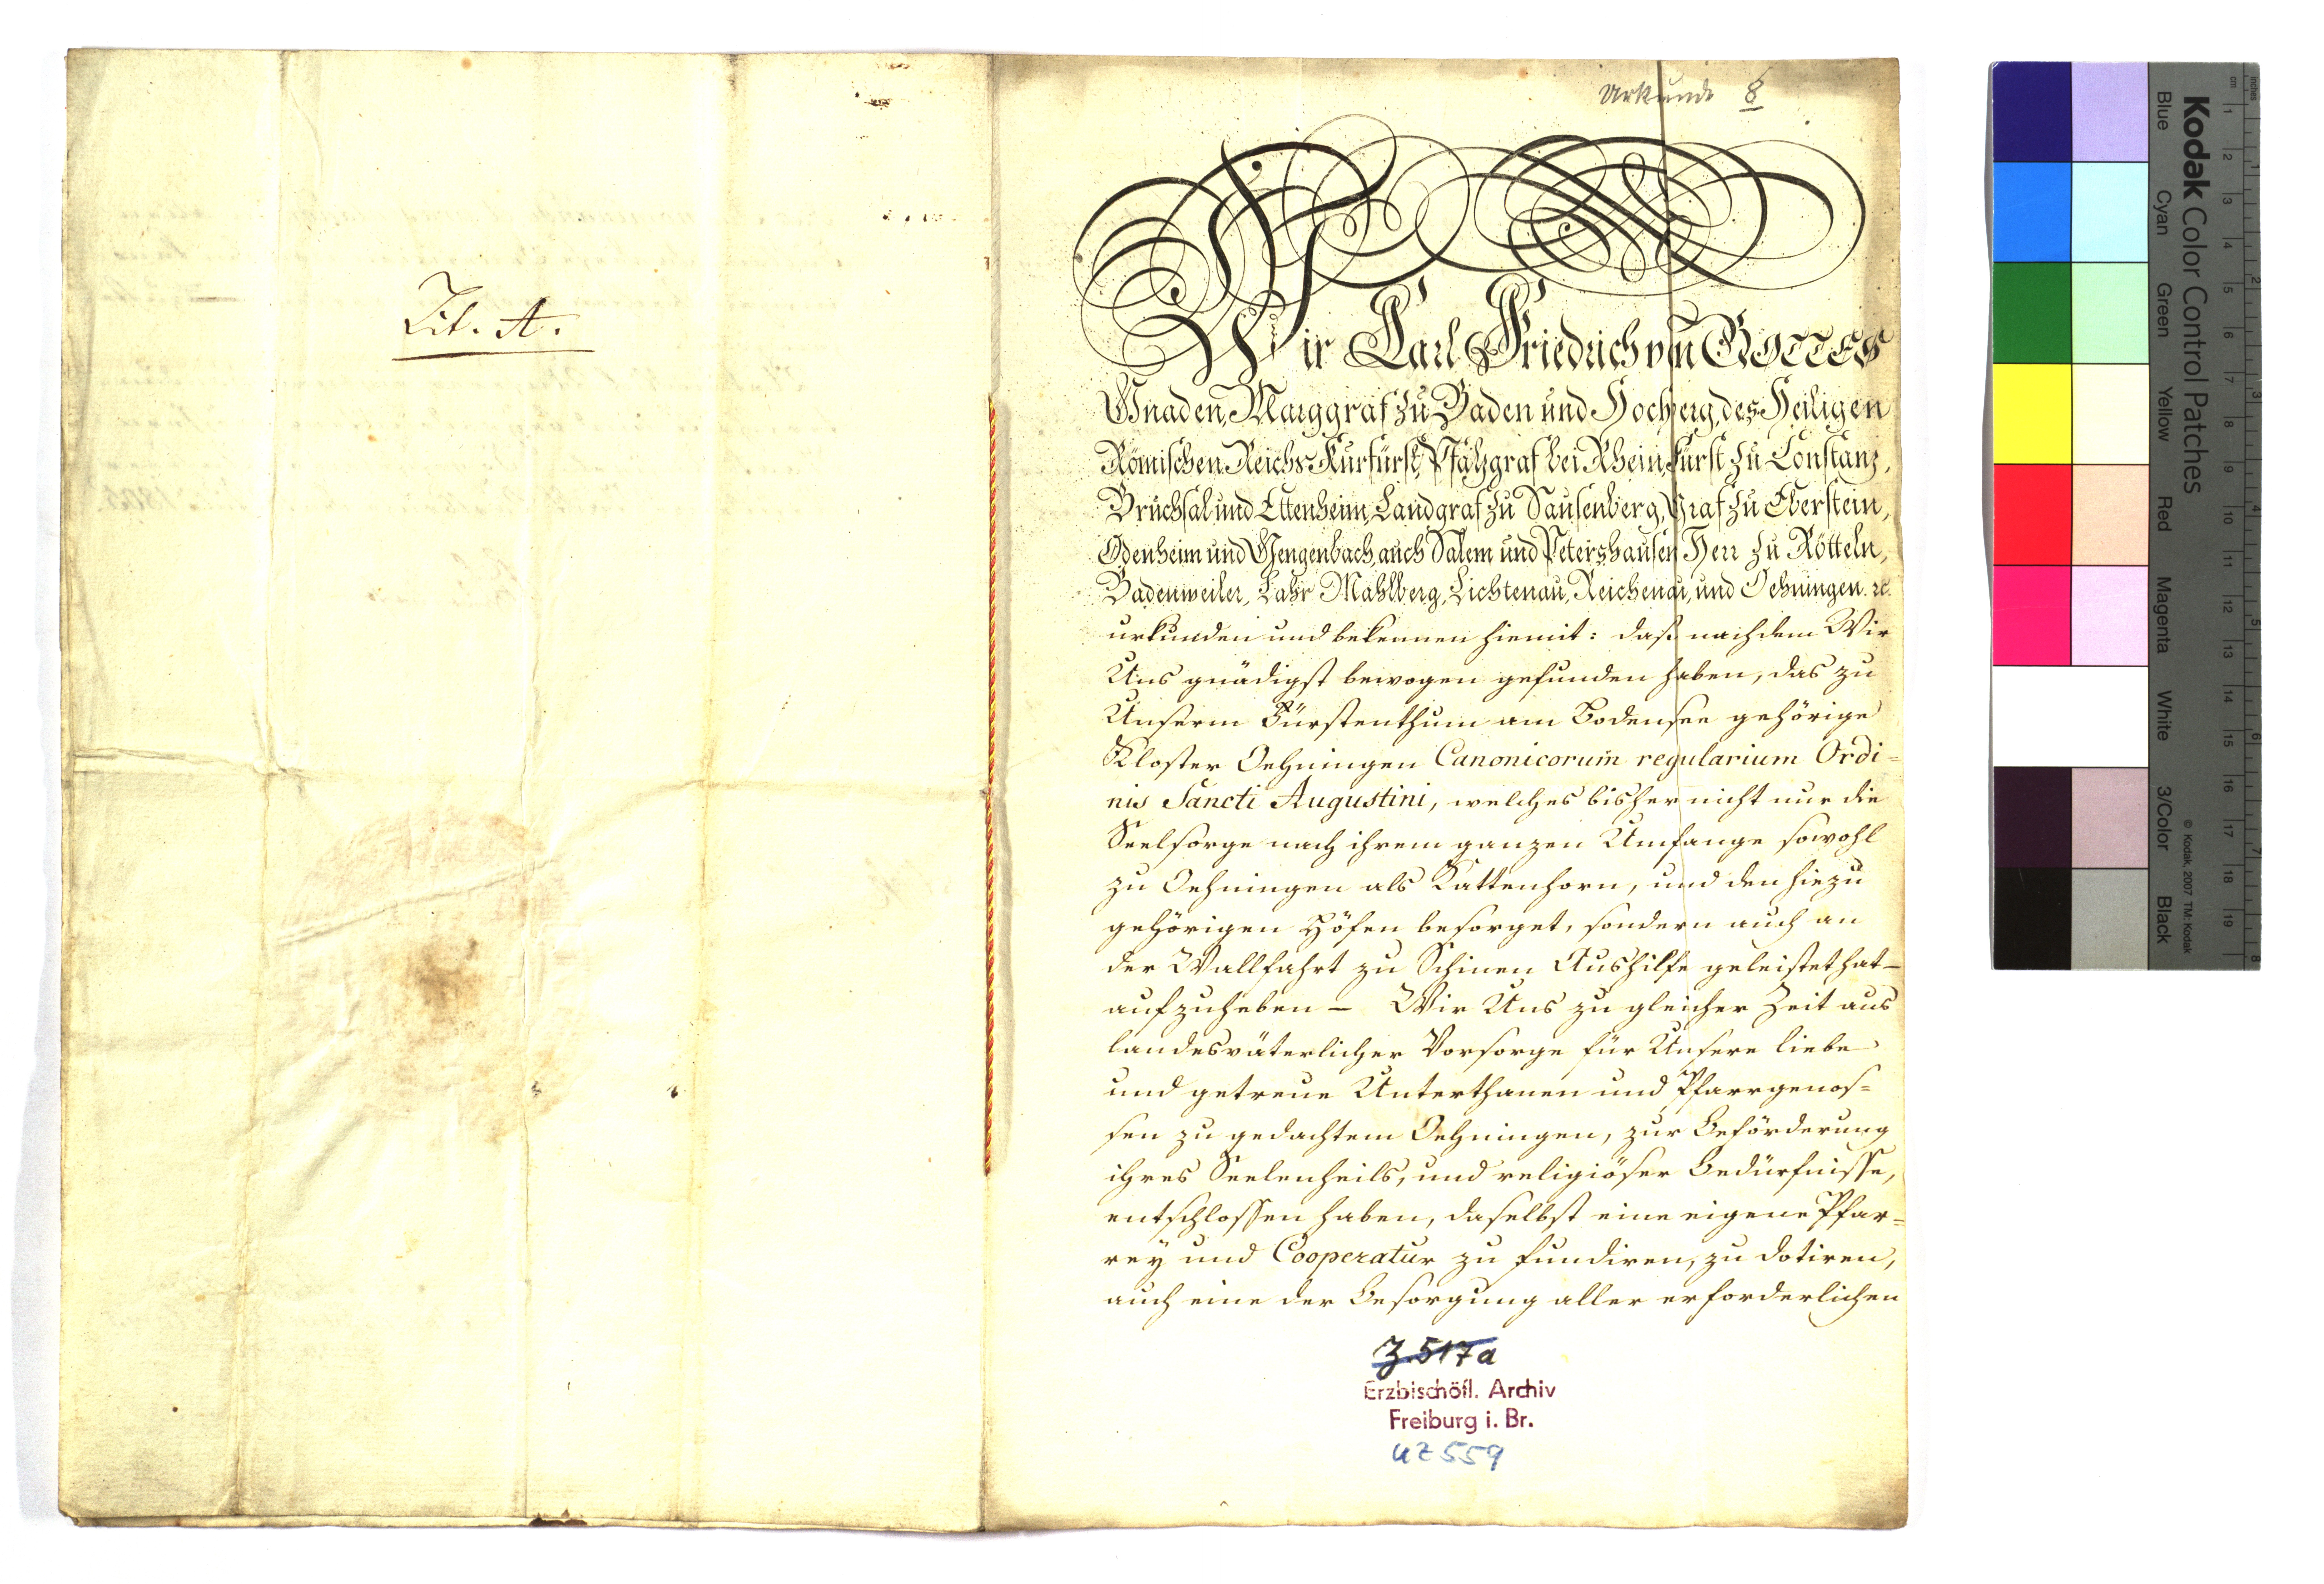 Lit. A.
Urkunde 8
Wir Carl Friedrich von GOTTES
Gnaden, Marggraf zu Baden und Hochberg, des Heiligen
Römischen Reichs Kurfürst, Pfalzgraf bei Rhein, Fürst zu Constanz,
Bruchsal und Ettenheim, Landgraf zu Sausenberg, Graf zu Eberstein,
Odenheim und Gengenbach, auch Salem und Petershausen, Herr zu Rötteln,
Badenweiler, Lahr Mahlberg, Lichtenau, Reichenau, und Oehningen. ꝛc.
urkunden und bekennen hiemit: daß nachdem Wir
Uns gnädigst bewogen gefunden haben, das zu
Unserm Fürstenthum am Bodensee gehörige
Kloster Oehningen Canonicorum regularium Ordi=
nis Sancti Augustini, welches bisher nicht nur die
Seelsorge nach ihrem ganzen Umfange sowohl
zu Oehningen als Kattenhorn, und den hiezu
gehörigen Höfen besorget, sondern auch an
der Wallfahrt zu Schinen Aushilfe geleistet hat –
aufzuheben – Wir Uns zu gleicher Zeit aus
landesväterlicher Vorsorge für Unsere liebe
und getreue Unterthanen und Pfarrgenos=
sen zu gedachtem Oehningen, zur Beförderung
ihres Seelenheils, und religiöser Bedürfnisse,
entschlossen haben, daselbst eine eigene Pfar=
rey und Cooperatur zu fundiren, zu dotiren,
auch eine der Besorgung aller erforderlichen
Z.517a
Erzbischöfl. Archiv
Freiburg i. Br.
UZ 559
Kodak Color Control Patches
© Kodak, 2007 TM: Kodak
Blue Cyan Green Yellow Red Magenta White 3/Color Black
cm 1 2 3 4 5 6 7 8 9 10 11 12 13 14 15 16 17 18 19
inches 1 2 3 4 5 6 7 8